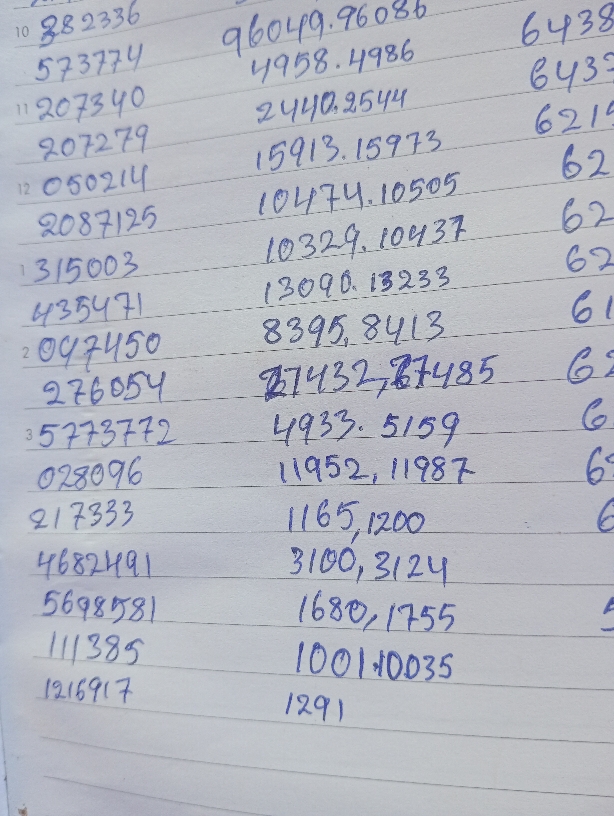 10 382336 96049.96086 6438
573774 4958.4986 643
11 207340 2440.2544 621
207279 15913.15973 62
12 050214 10474.10505 62
2087125 10329.10437 62
1 315003 13090.13233 61
435471 8395,8413 62
2 047450 27432,27485 6
276054 4933.5159 6
3 5773772 11952,11987 6
028096 1165,1200
217333 3100,3124 5
4682491 1680,1755
5698581 1001.10035
111385 1291
1216917